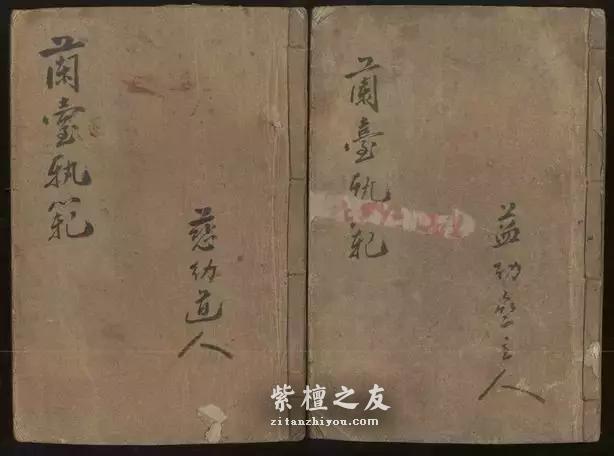 蘭臺軌範
慈幼道人
蘭臺軌範
益幼齋主人
紫檀之友
zitanzhiyou.com